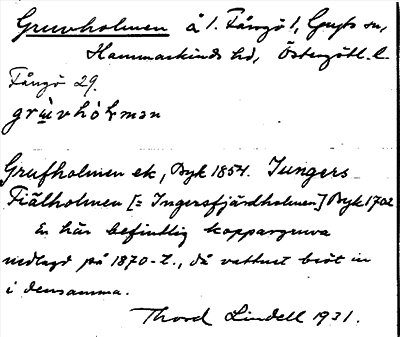 Gruvholmen å l. Fångö l, Gryts sn,
Hammarkinds hd, Östergötl. l.
Fångö 29.
Grufholmen ek, Byk 1854. Jungers
Fiälholmen [= Ingersfjärdholmen] Byk 1702
En här befintlig koppargruva
nedlagd på 1870-t., då vattnet bröt in
i densamma.
Thord Lindell 1931.